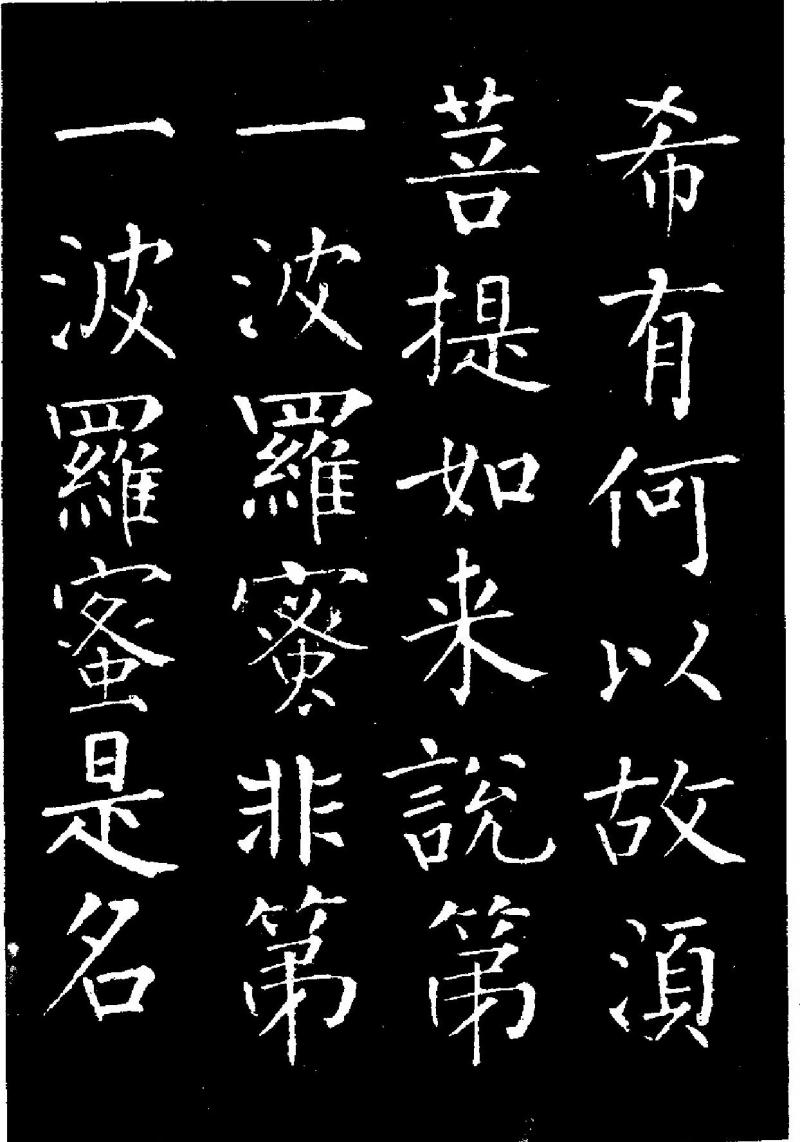 希有何以故湏
菩提如来説第
一波羅蜜非第
一波羅蜜是名